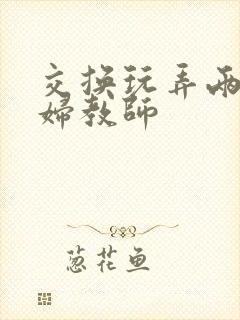 交换玩弄两
婦教師
葱花鱼